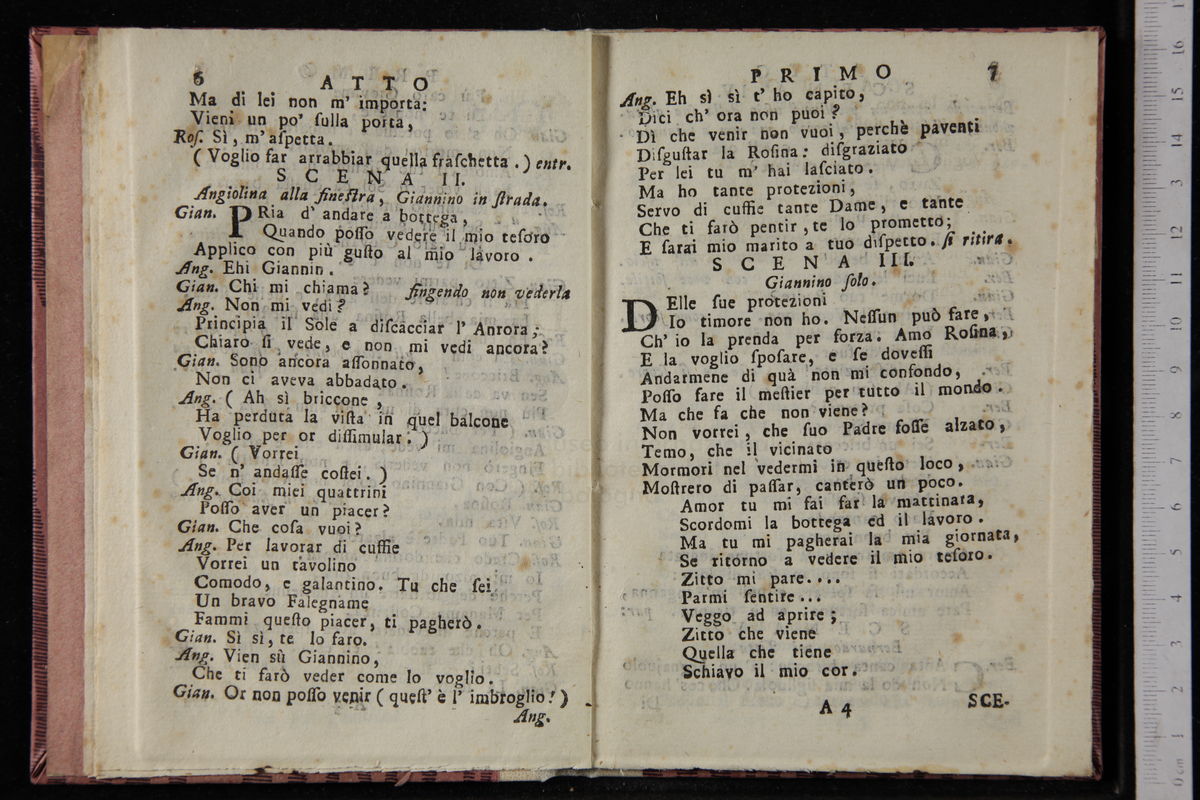 6 ATTO
Ma di lei non m' importa:
Vieni un po' ſulla porta,
Roſ. Sì, m'aſpetta.
( Voglio far arrabbiar quella fraſchetta . ) entr.
SCENA II.
Angiolina alla fineſtra, Giannino in ſtrada.
Gian. PRia d' andare a bottega,
Quando poſſo vedere il mio teſoro
Applico con più guſto al mio lavoro .
Ang. Ehi Giannin.
Gian. Chi mi chiama? fingendo non vederla
Ang. Non mi vedi?
Principia il Sole a diſcacciar l' Anrora;
Chiaro ſi vede, e non mi vedi ancora?
Gian. Sono ancora aſſonnato,
Non ci aveva abbadato.
Ang. ( Ah sì briccone ,
Ha perduta la viſta in quel balcone
Voglio per or diſſimular. )
Gian. ( Vorrei
Se n' andaſſe coſtei. )
Ang. Coi miei quattrini
Poſſo aver un piacer?
Gian. Che coſa vuoi?
Ang. Per lavorar di cuffie
Vorrei un tavolino
Comodo, e galantino. Tu che ſei
Un bravo Falegname
Fammi queſto piacer, ti pagherò.
Gian. Sì sì, te lo faro.
Ang. Vien sù Giannino,
Che ti farò veder come lo voglio.
Gian. Or non poſſo venir ( queſt' è l' imbroglio! )
Ang.
PRIMO 7
Ang. Eh sì sì t' ho capito,
Dici ch' ora non puoi?
Dì che venir non vuoi, perchè paventi
Diſguſtar la Roſina: diſgraziato
Per lei tu m' hai laſciato.
Ma ho tante protezioni,
Servo di cuffie tante Dame, e tante
Che ti farò pentir, te lo prometto;
E ſarai mio marito a tuo diſpetto. ſi ritira.
SCENA III.
Giannino ſolo.
DElle ſue protezioni
Io timore non ho. Neſſun può fare,
Ch' io la prenda per forza. Amo Roſina,
E la voglio ſpoſare, e ſe doveſſi
Andarmene di quà non mi confondo,
Poſſo fare il meſtier per tutto il mondo.
Ma che fa che non viene?
Non vorrei, che ſuo Padre foſſe alzato,
Temo, che il vicinato
Mormori nel vedermi in queſto loco,
Moſtrero di paſſar, canterò un poco.
Amor tu mi fai far la mattinata,
Scordomi la bottega ed il lavoro.
Ma tu mi pagherai la mia giornata,
Se ritorno a vedere il mio teſoro.
Zitto mi pare....
Parmi ſentire...
Veggo ad aprire;
Zitto che viene
Quella che tiene
Schiavo il mio cor.
A 4 SCE-